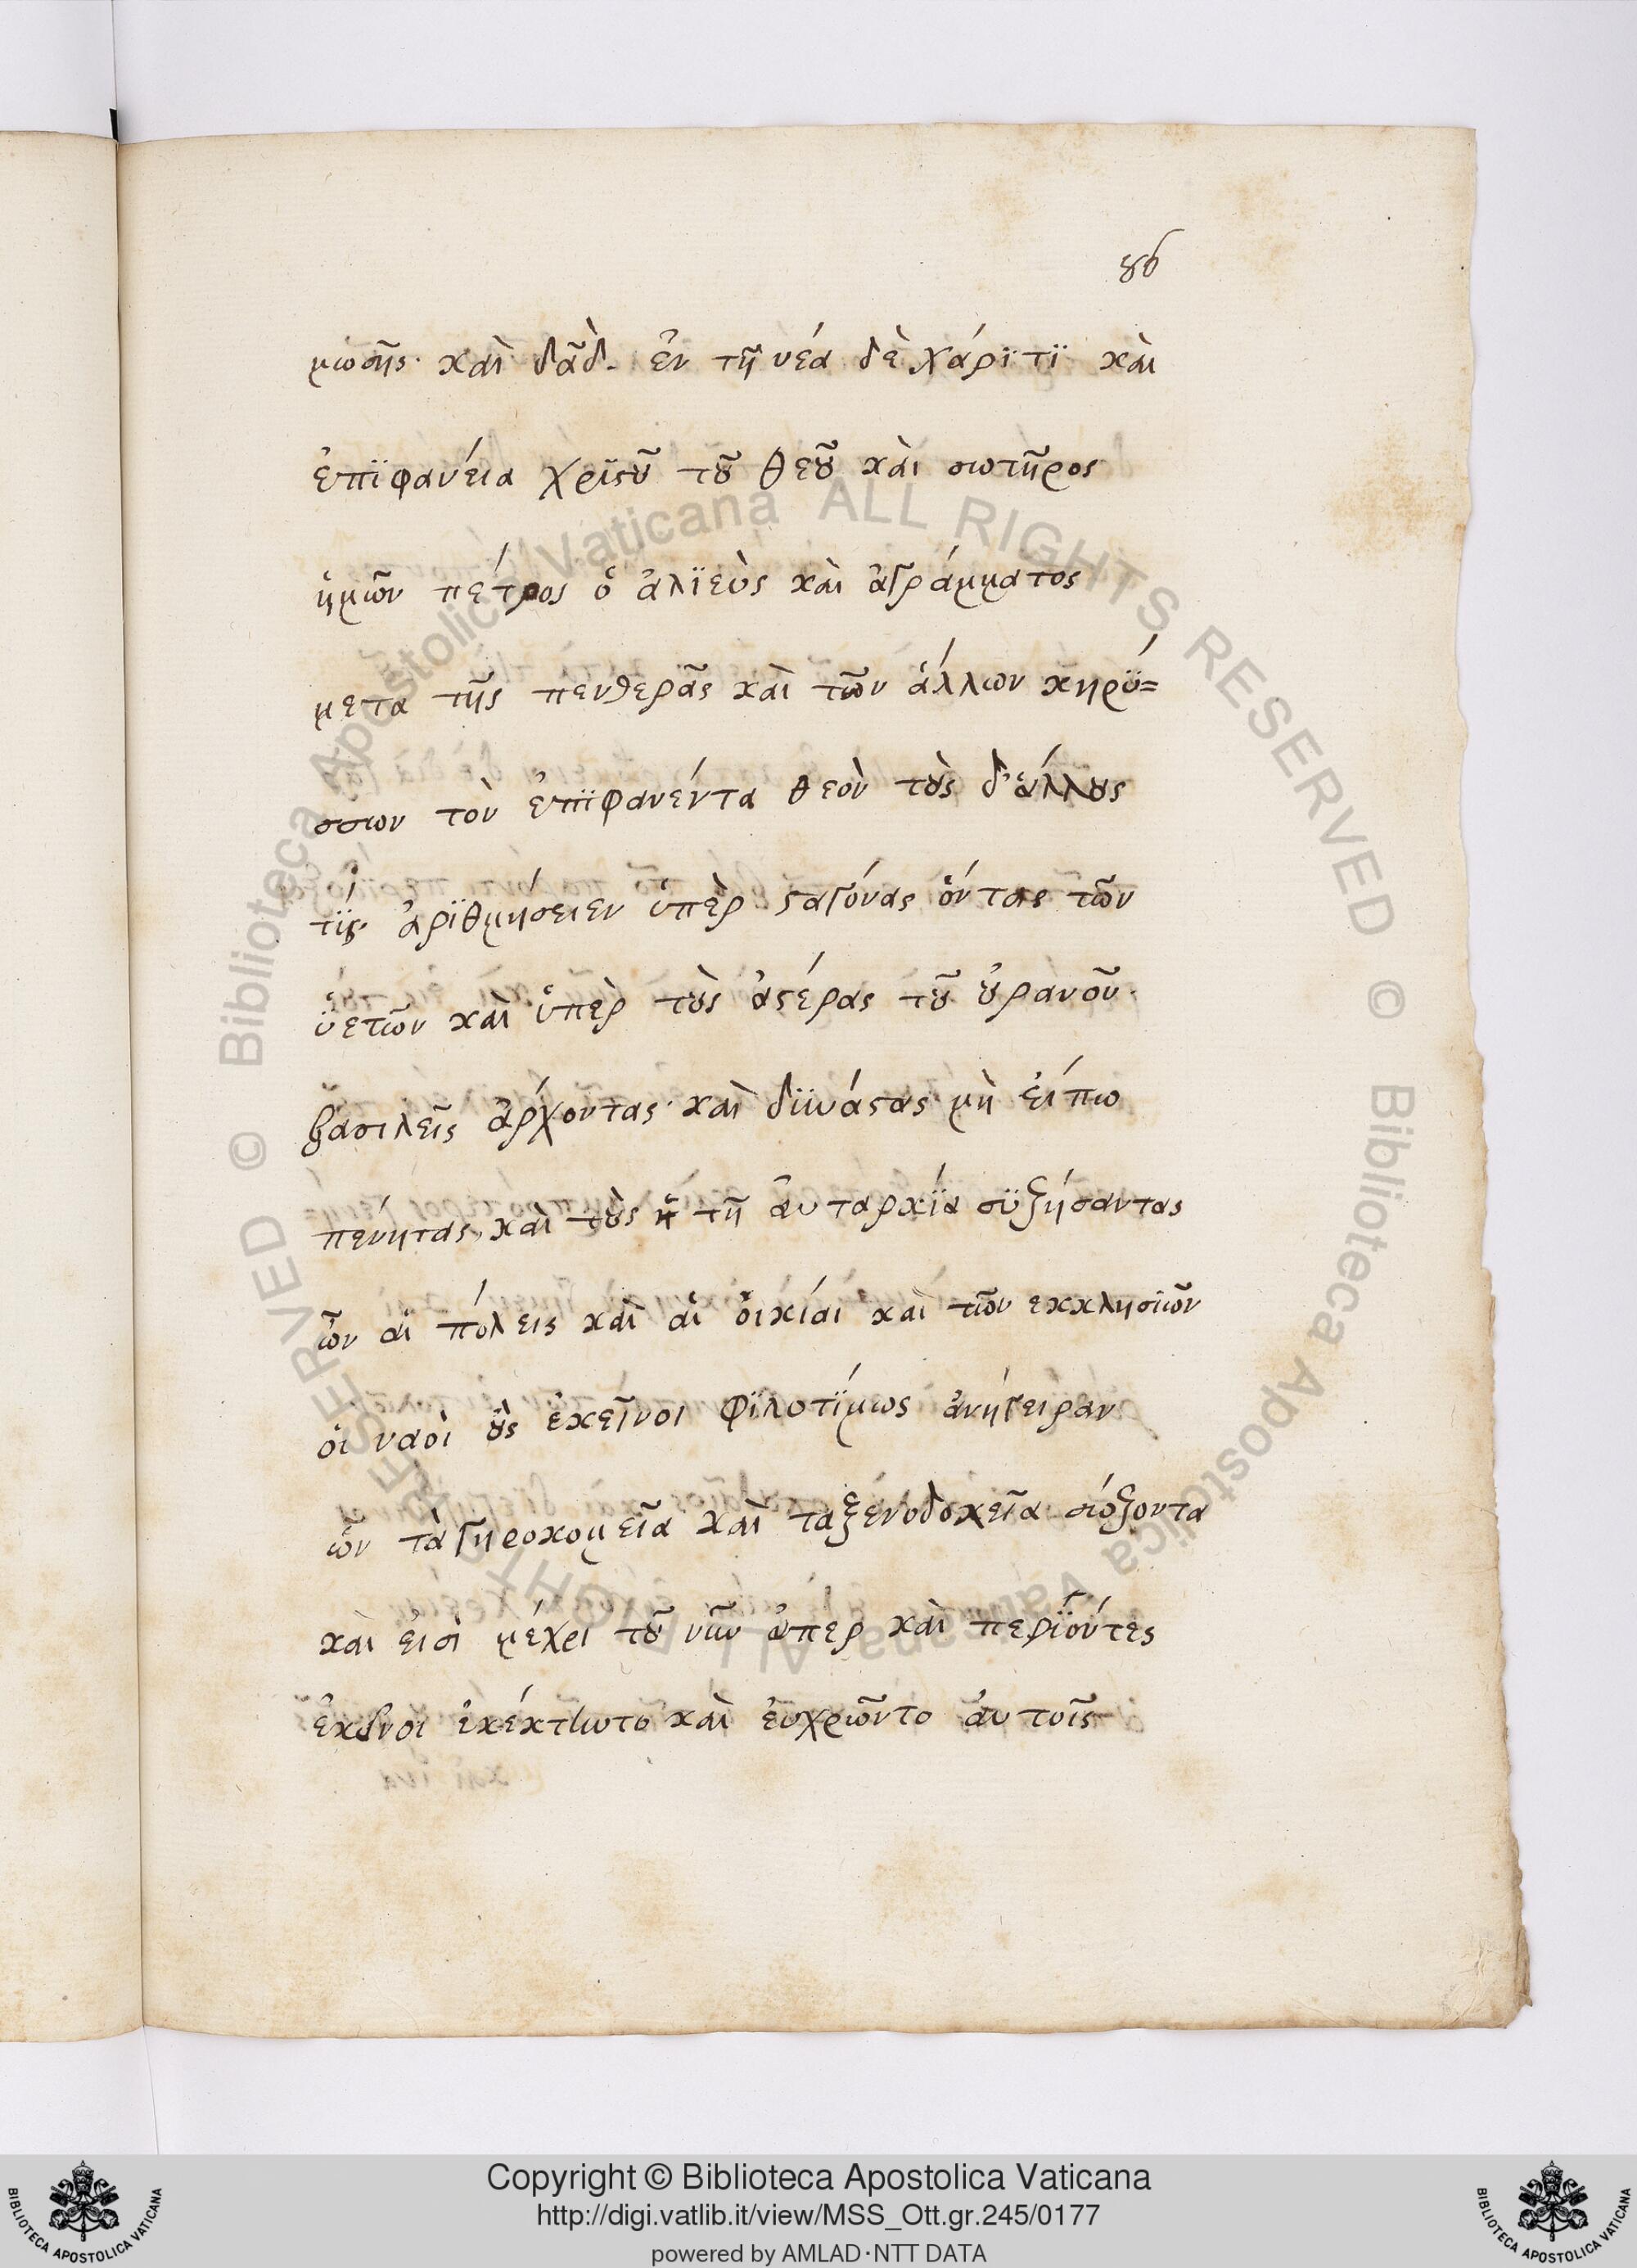 86
μωσῆς· καὶ δᾶδ. ἐν τῇ νέα δὲ χάρϊτϊ καὶ
ἐπϊφανεία χρϊστοῦ τοῦ θεοῦ καὶ σωτῆρος
ἡμῶν πέτρος ὁ ἁλϊεὺς καὶ ἀγράμματος
μετα τῆς πενθερᾶς καὶ τῶν ἄλλων κηρΰ=
σσων τὸν ἐπϊφανέντα θεὸν τοὺς δ' ἄλλους
τίς ἀρϊθμήσειεν ὑπὲρ σταγόνας ὄντας τῶν
ὑετῶν καὶ ὑπὲρ τοὺς ἀστέρας τοῦ οὐρανοῦ·
βασιλεῖς ἄρχοντας· καὶ δϋνάστας μὴ εἴπω
πένητας, καὶ τοὺς ἢ τῇ ἀυταρκία σϋζήσαντας
ὧν αἱ πόλεις καὶ αἱ οἰκίαι καὶ τῶν εκκλησϊῶν
οἱ ναοὶ οὓς ἐκεῖνοι φϊλοτίμως ἀνήγειραν
ὧν τὰ γηροκομεῖα καὶ τα ξενοδοχεῖα σόζοντα
καὶ εισὶ μέχρι τοῦ νῦν ὥπερ καὶ περϊόντες
ἐκεῖνοι ἐκέκτηωτο καὶ ἐυχρῶντο ἀυτοῖς
Copyright © Biblioteca Apostolica Vaticana
http://digi.vatlib.it/view/MSS_Ott.gr.245/0177
powered by AMLAD·NTT DATA
BIBLIOTECA APOSTOLICA VATICANA
BIBLIOTECA APOSTOLICA VATICANA
© Biblioteca Apostolica Vaticana ALL RIGHTS RESERVED
© Biblioteca Apostolica Vaticana ALL RIGHTS RESERVED